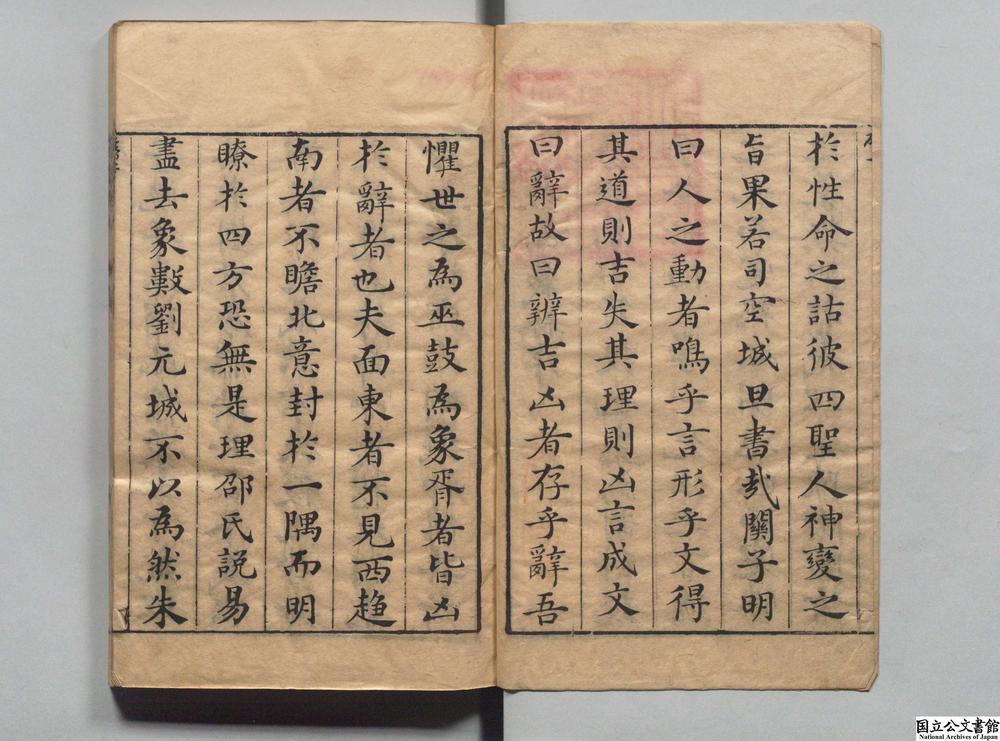 於性命之詁彼四聖人神變之
旨果若司空城旦書哉關子明
曰人之動者鳴乎言形乎文得
其道則吉失其理則凶言成文
曰辭故曰辨吉凶者存乎辭吾
懼世之為巫鼓為象胥者皆凶
於辭者也夫面東者不見西趋
南者不瞻北意封於一隅而明
瞭於四方恐無是理邵氏説易
盡去象數劉元城不以為然朱
国立公文書館
National Archives of Japan